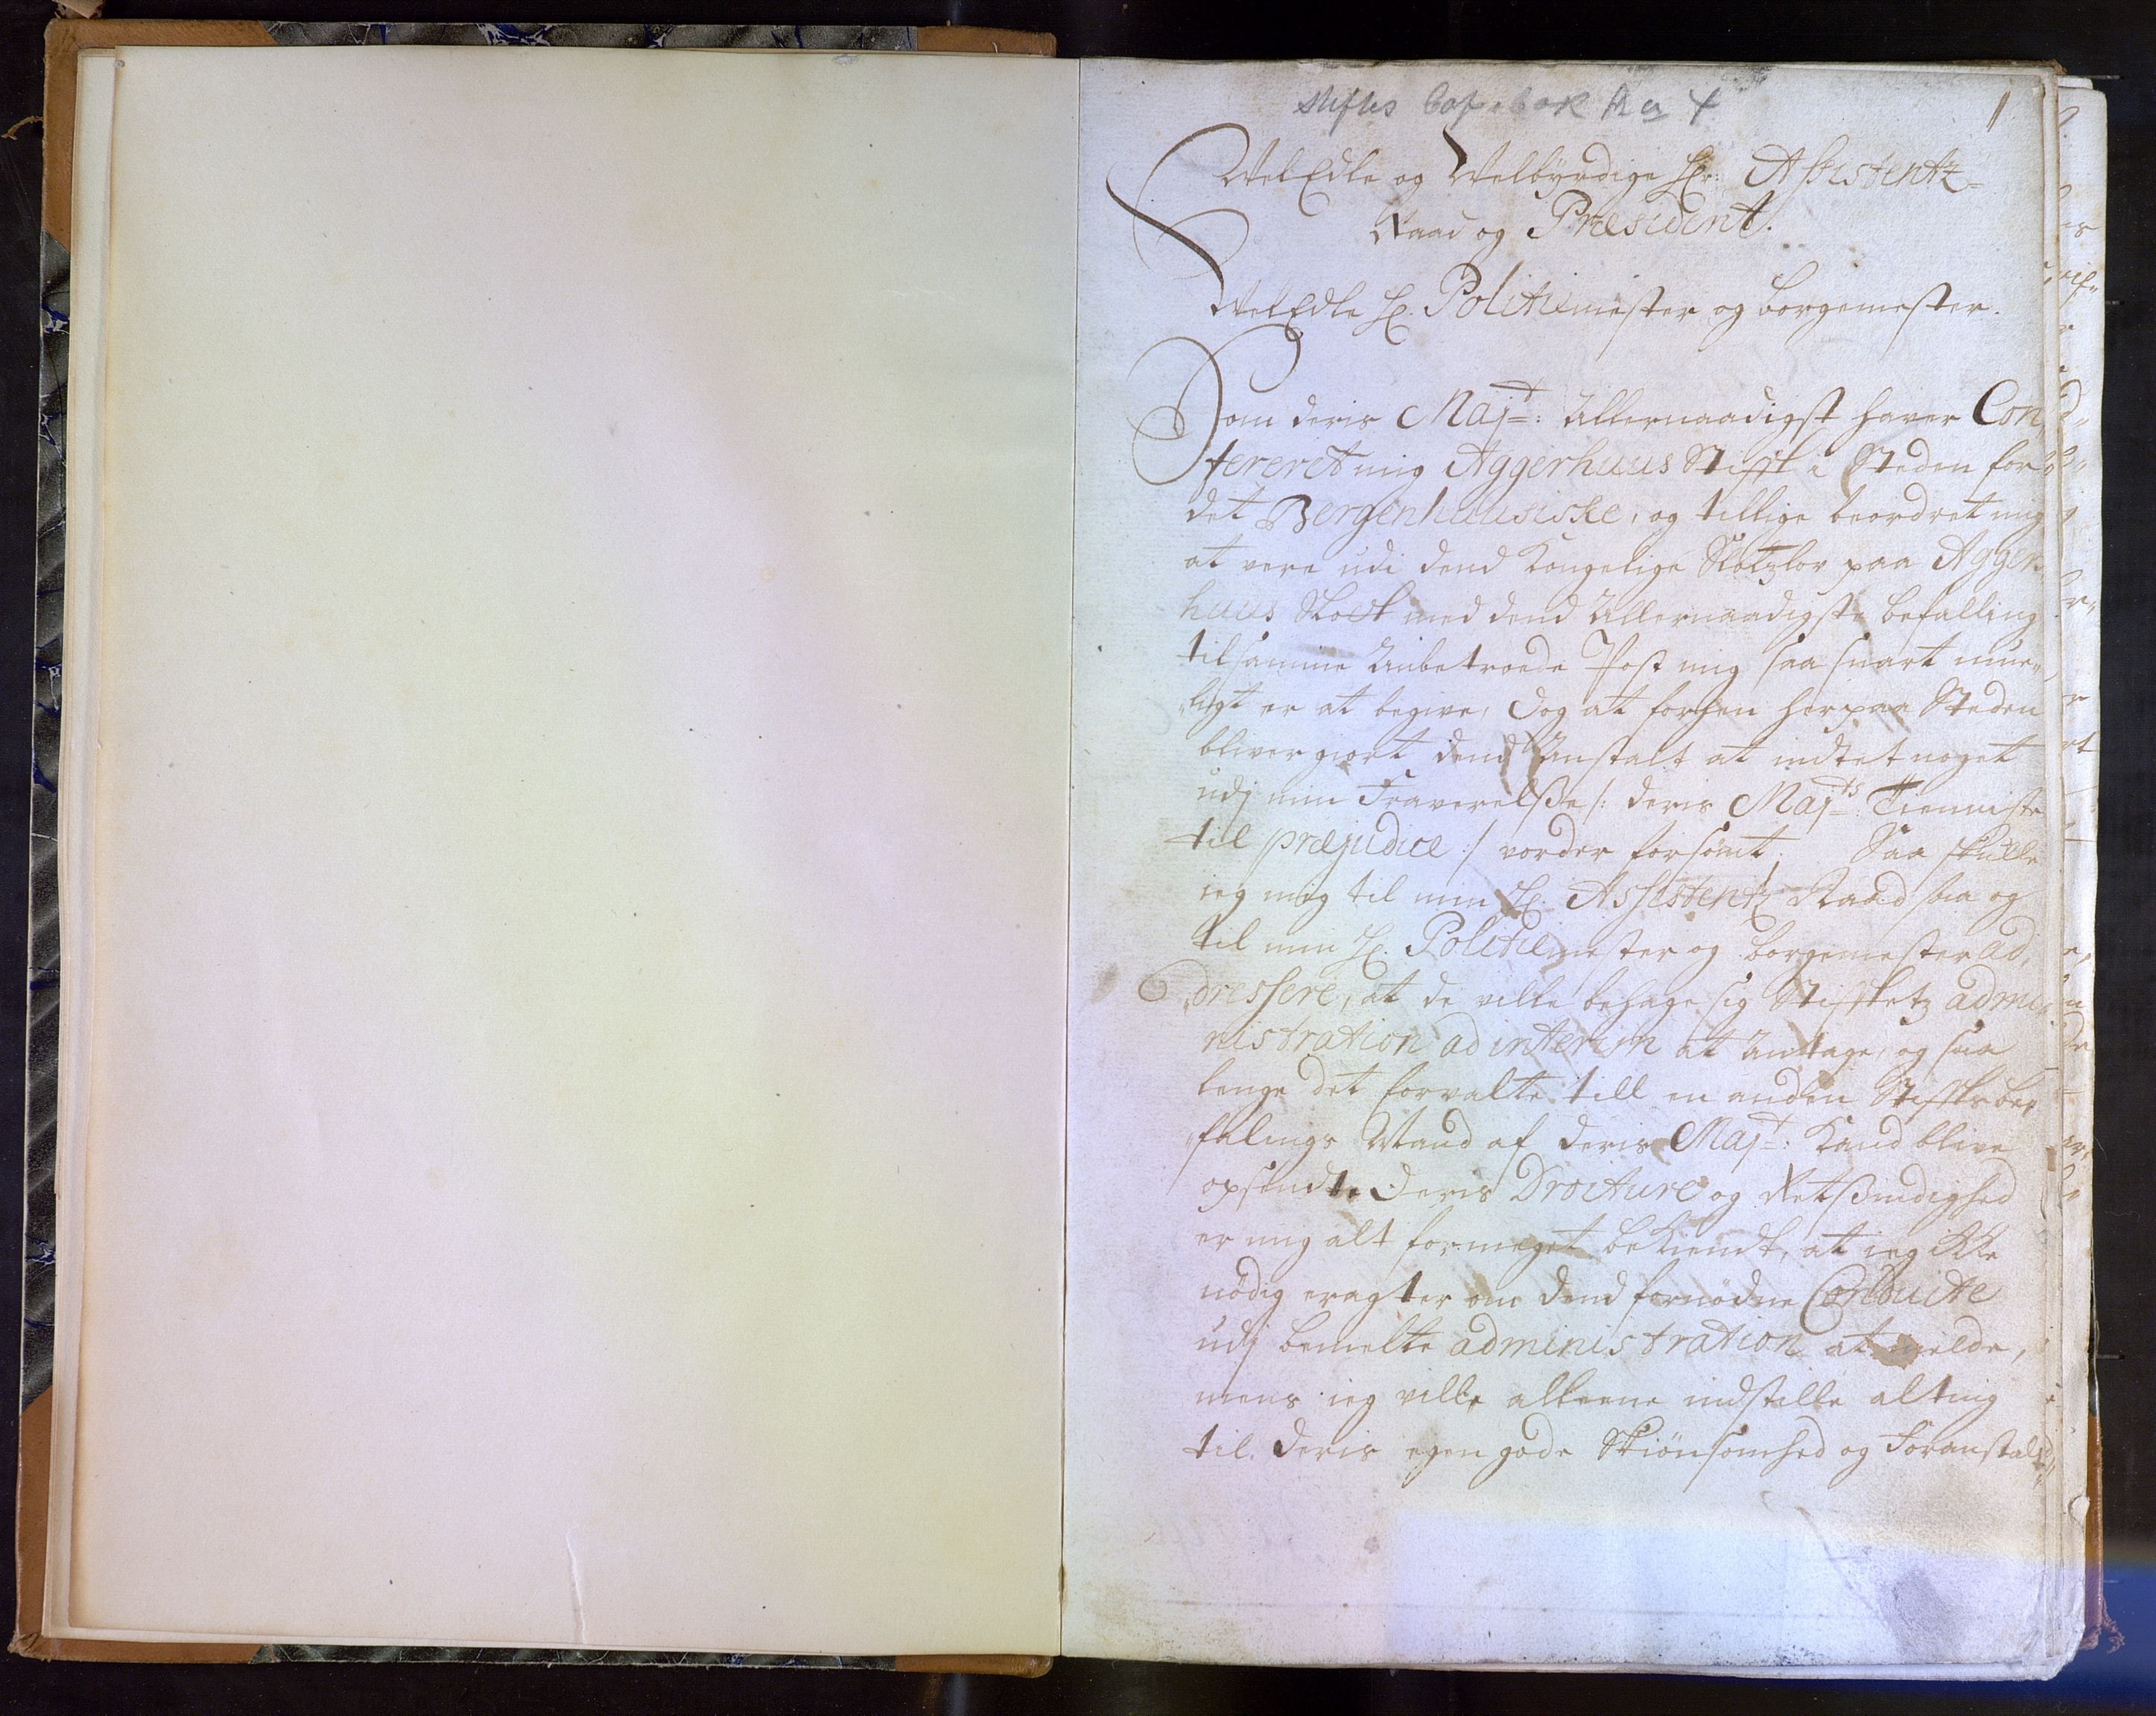 Stiftes Copebok No 4
1
Wel Edle og Welbyrdige Hr: Assistentz-
Raad og Præsident.
WelEdle H: Politiemester og borgemester.
Som deris Majt: Allernaadigst haver Con„
fereret mig Aggerhuus Stifft i Steden for
det Bergenhuusiske, og tillige beordret mig
at vere udi dend Kongelige Slotzlov paa Agger„
huus Slott med dend Allernaadigste befalling
til samme Anbetroede Post mig saa snart mue„
„ligt er at begive, dog at forhen her paa Steden
bliver giort dend Anstalt at indtet noget
udj min Fraverelsse /: deris Majts: Tienniste
til præjudice :/ vorder forsømt, Saa skulle
ieg mig til min H: Assistentz Raad saa og
til min H: Politiemester og borgemester ad„
„dressere, at de ville behage sig Stifftetz admi„
nistration ad interim at Antage, og saa
lenge det forvalte till en anden Stifftsbe„
„falings Mand af deris Majt: Kand blive
opsendt. Deris Droiture og Retsindighed
er mig alt formeget bekiendt, at ieg ikke
nödig eragter om dend fornødne Conduite
udj bemelte administration at melde,
mens ieg ville alleene indstille alting
til deris egen gode Skiönsomhed og Foranstalt„